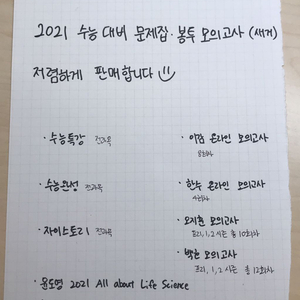 2021 수능 대비 문제집·봉투 모의고사 (새거)
저렴하게 판매합니다
· 수능특강 전과목
· 수능완성 전과목
· 자이스토리 전과목
· 윤도영 2021 All about Life Science
· 이감 온라인 모의고사
· 한수 온라인 모의고사
· 오지훈 모의고사
프리, 1, 2 시즌 총 10회차
· 백호 모의고사
프리, 1, 2 시즌 총 12회차